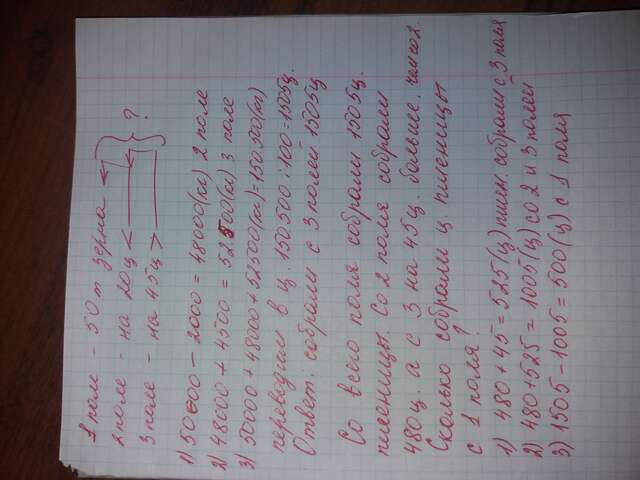 1 поле - 50 т зерна
2 поле - на 20ц <
3 поле - на 45ц > ?
1) 50000 - 2000 = 48000(кг) 2 поле
2) 48000 + 4500 = 52500(кг) 3 поле
3) 50000 + 48000 + 52500(кг) = 150500(кг)
переводим в ц. 150500 : 100 = 1505ц.
Ответ: собрали с 3 полей 1505ц
Со всего поля собрали 1505ц.
пшеницы. Со 2 поля собрали
480ц. а с 3 на 45ц. больше, чем со 2.
Сколько собрали ц. пшеницы
с 1 поля?
1) 480 + 45 = 525(ц) пшен. собрали с 3 поля
2) 480 + 525 = 1005(ц) со 2 и 3 полей
3) 1505 - 1005 = 500(ц) с 1 поля